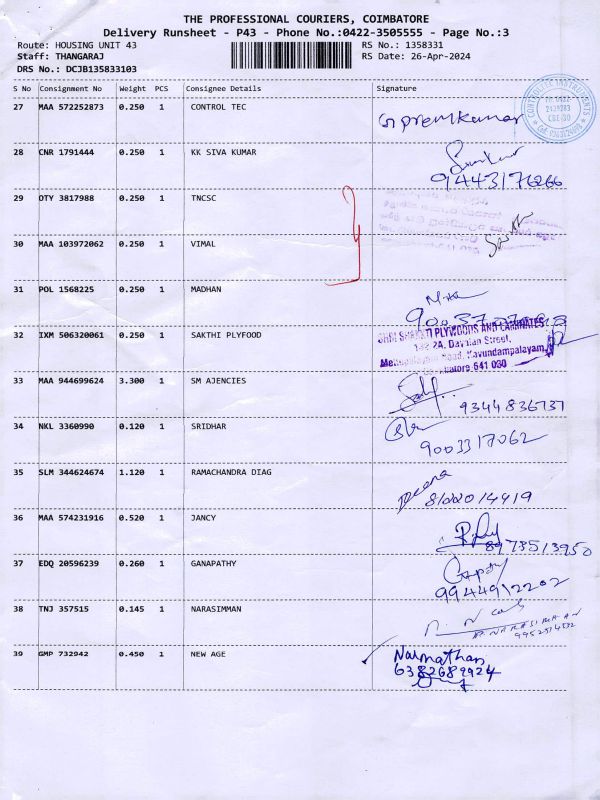 THE PROFESSIONAL COURIERS, COIMBATORE
Delivery Runsheet - P43 - Phone No.:0422-3505555 - Page No.:3
Route: HOUSING UNIT 43 RS No.: 1358331
Staff: THANGARAJ RS Date: 26-Apr-2024
DRS No.: DCJB135833103
S No Consignment No Weight PCS Consignee Details Signature
27 MAA 572252873 0.250 1 CONTROL TEC
premkumar
28 CNR 1791444 0.250 1 KK SIVA KUMAR
9443176266
29 DTY 3817988 0.250 1 TNCSC
30 MAA 103972062 0.250 1 VIMAL
31 POL 1568225 0.250 1 MADHAN
32 IXM 506320061 0.250 1 SAKTHI PLYFOOD
SHRI SHAKTI PLYWOODS AND LAMINATES
Street,
Road, Kavundampalayam,
641 030
33 MAA 944699624 3.300 1 SM AJENCIES
9344836737
34 NKL 3360990 0.120 1 SRIDHAR
9003317062
35 SLM 344624674 1.120 1 RAMACHANDRA DIAG
36 MAA 574231916 0.520 1 JANCY
8973513950
37 EDQ 20596239 0.260 1 GANAPATHY
9944912202
38 TNJ 357515 0.145 1 NARASIMMAN
39 GMP 732942 0.450 1 NEW AGE
6382689924